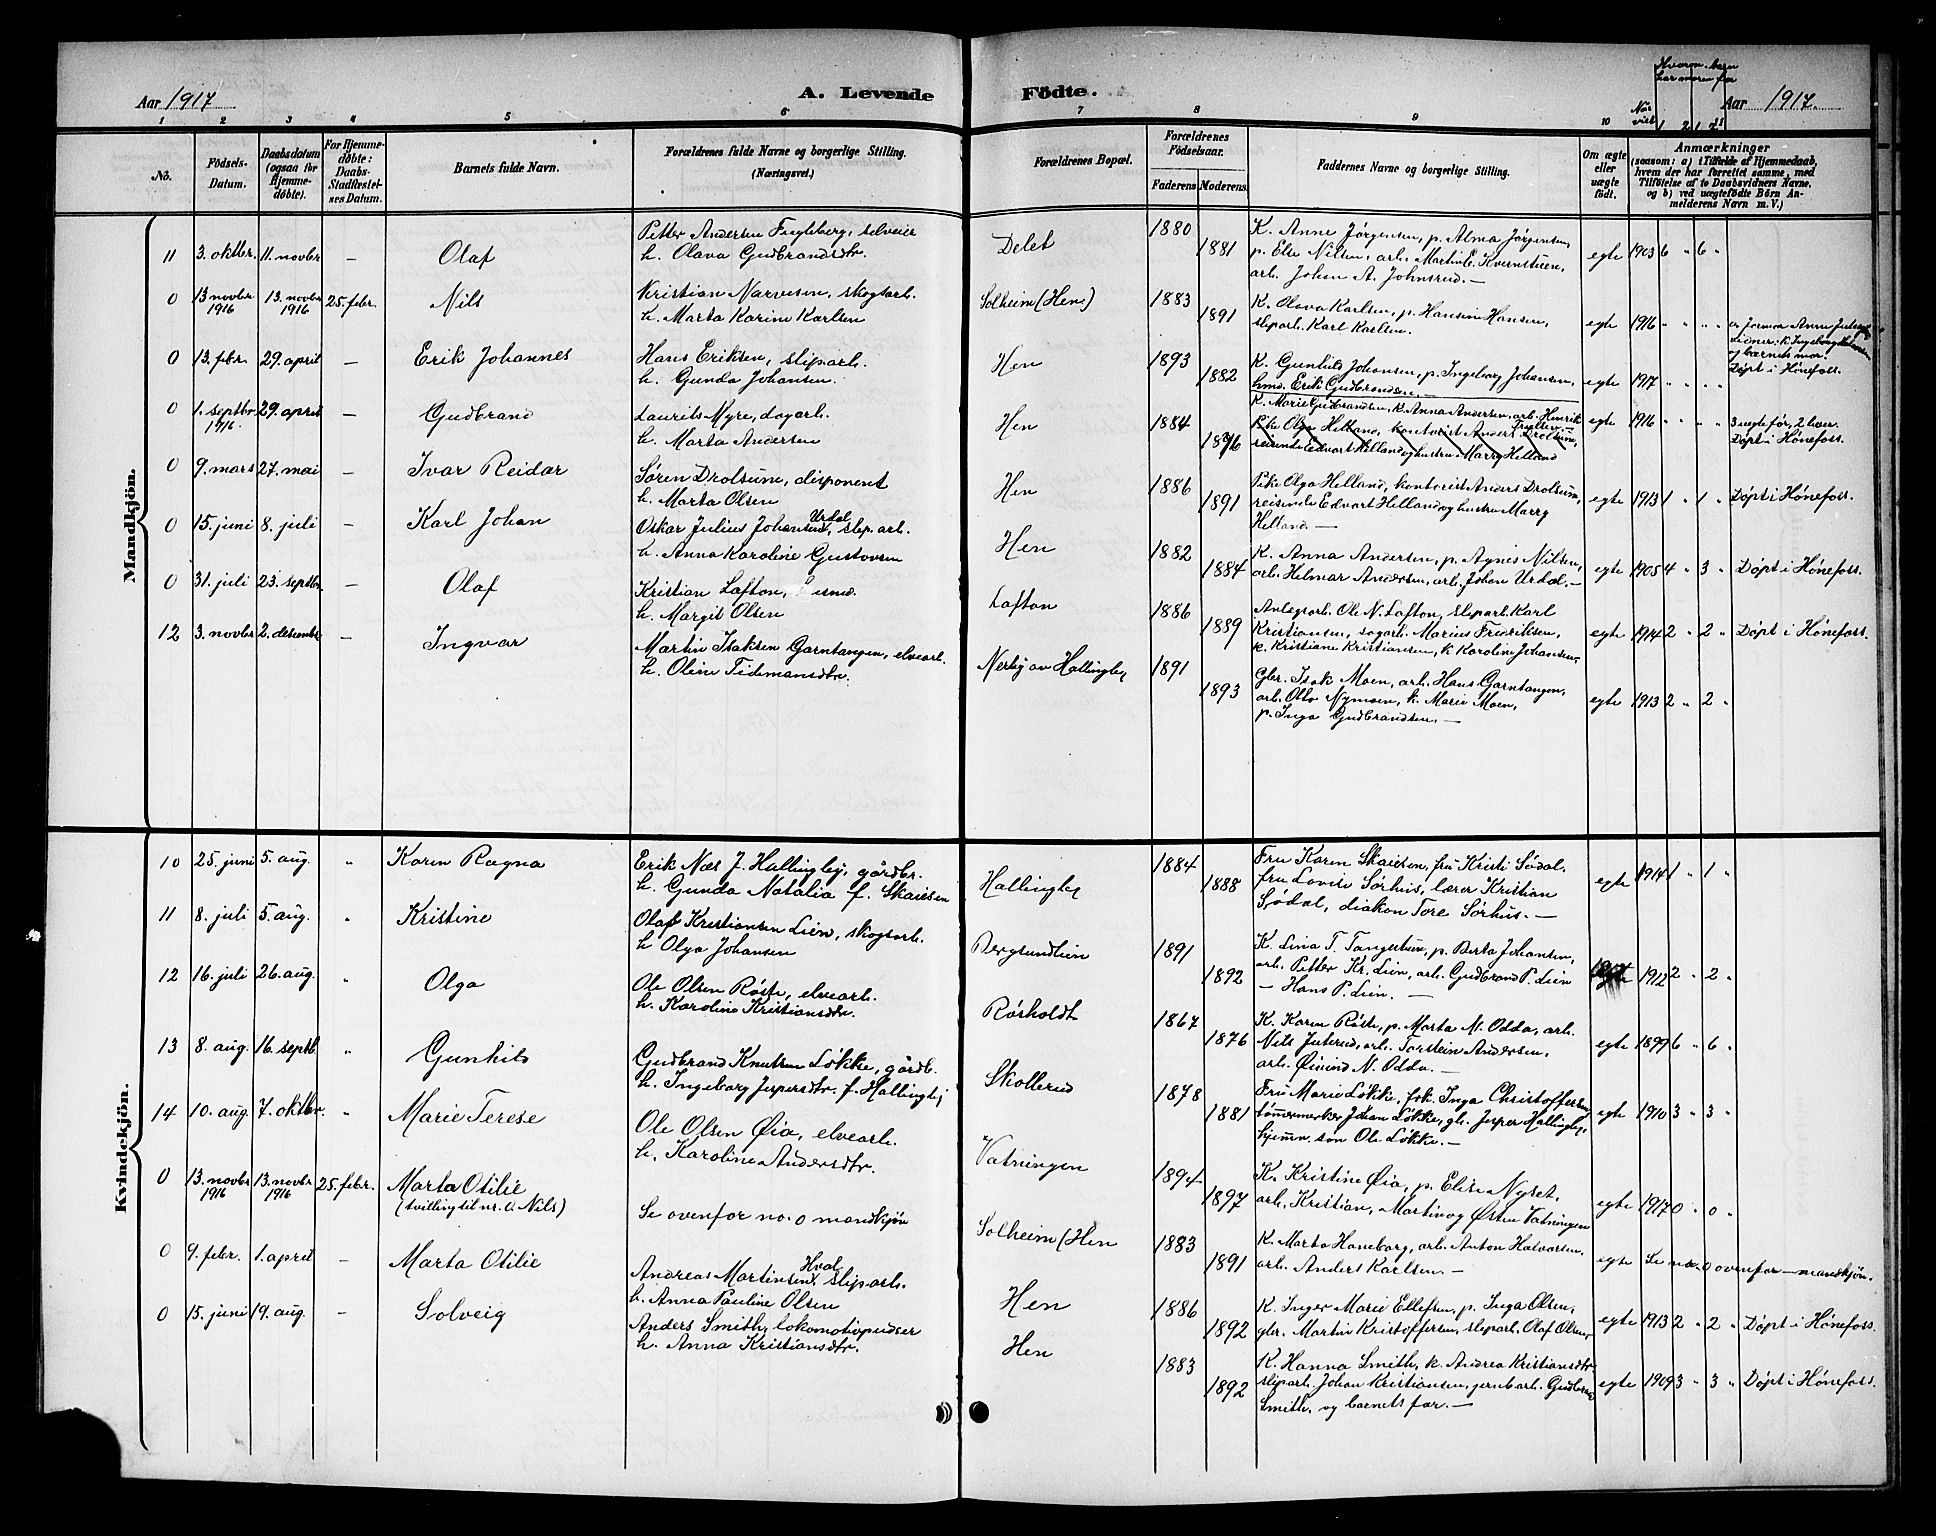 Aar 1917
A. Levende
Födte.
Hvorm. barn
har moren før
Aar 1917.
1 2 3 4 5 6 7 8 9 10
No.
Födsels-
Datum.
Daabsdatum
(ogsaa for
Hjemme-
døbte).
For Hjemme-
døbte:
Daabs-
Stadfæstel-
ses Datum.
Barnets fulde Navn.
Forældrenes fulde Navne og borgerlige Stilling.
(Næringsvei.)
Forældrenes Bopæl.
Forældrenes
Födselsaar.
Faderens
Moderens.
Faddernes Navne og borgerlige Stilling.
Om ægte
eller
uægte
født.
Anmærkninger
(saasom: a) i Tilfælde af Hjemmedaab,
hvem der har forrettet samme, med
Tilföielse af to Daabsvidners Navne,
og b) ved uægtefödte Börn An-
melderens Navn m. V.)
Mandkjön.
11 3. oktbr. 11. novbr — Olaf
Petter Andersen Fugleberg, selveier
h. Olava Gudbrandsdtr.
Delet 1880 1881
K. Anne Jørgensen, p. Alma Jørgensen,
p. Else Nilsen, arb. Martin E. Kvernstuen,
arb. Johan A. Johnsrud. —
egte 1903 6 " 6 "
0 13 novbr 1916 13. novbr 1916 25. febr. Nils
Kristian Narvesen, skogsarb.
h. Marta Karine Karlsen
Solheim (Hen) 1883 1891
K. Olava Karlsen, p. Hansine Hansen,
sliparb. Karl Karlsen.
egte 1916 " " " "
og barnets mor.
0 13. febr. 29. april — Erik Johannes
Hans Eriksen, sliparb.
h. Gunda Johansen.
Hen 1893 1882
K. Gunhild Johansen, p. Ingeborg Johansen,
hmd. Erik Gudbrandsen. —
egte 1917 " " " "
Døpt i Hønefoss.
0 1. septbr 1916. 29. april — Gudbrand
Laurits Myre, dagarb.
h. Marta Andersen
Hen 1884 1896
K. Marie Gudbrandsen, k. Anna Andersen, arb. Henrik
Knutsen. —
Pike Olga Helland, kontorist Anders Drolsum,
reisende Edvart Helland og hustru Marry Helland
egte 1916 " " " "
3 uegte før, 2 lever.
Døpt i Hønefoss.
0 9. mars 27. mai — Ivar Reidar
Søren Drolsum, disponent
h. Marta Olsen
Hen 1886 1891
Pike Olga Helland, kontorist Anders Drolsum,
reisende Edvart Helland og hustru Marry
Helland —
egte 1913 1 " 1 " Døpt i Hønefoss.
0 15. juni 8. juli — Karl Johan
Urdal
Oskar Julius Johansen, slip. arb.
h. Anna Karoline Gustovsen
Hen 1882 1884
K. Anna Andersen, p. Agnes Nilsen,
arb. Helmar Andersen, arb. Johan Urdal. —
egte 1905 4 " 3 " Døpt i Hønefoss.
0 31. juli 23. septbr. — Olaf
Kristian Lafton,
h. Margit Olsen
Lafton 1886 1889
Anlegsarb. Ole N. Lafton, sliparb. Karl
Kristiansen, sagarb. Marius Fredriksen,
k. Kristiane Kristiansen, k. Karoline Johansen.
egte 1914 2 " 2 " Døpt i Hønefoss.
12 3. novbr 2. desembr — Ingvar
Martin Isaksen Garntangen, elvearb.
h. Oline Tidemansdtr.
Nerby av Hallingby 1891 1893
Gbr. Isak Moen, arb. Hans Garntangen,
arb. Otto Nymoen, k. Marie Moen,
p. Inga Gudbrandsen. —
egte 1913 2 " 2 "
Kvindekjön.
10 25. juni 5. aug. " Karen Ragna
Erik Næs J. Hallingby, gårdbr.
h. Gunda Natalia f. Skaiesen
Hallingby 1884 1888
Fru Karen Skaiesen, fru Kristi Sødal,
fru Lovise Sørhus, lærer Kristian
Sødal, diakon Tore Sørhus. —
egte 1914 1 " 1 "
11 8. juli 5. aug. " Kristine
Olaf Kristiansen Lien, skogsarb.
h Olga Johansen
Bergsundlien 1891 1892
K. Lina T. Tangestuen, p. Berta Johansen,
arb. Petter Kr. Lien, arb. Gudbrand P. Lien
— Hans P. Lien. —
egte 1912 2 " 2 "
12 16. juli 26. aug. " Olga
Ole Olsen Røste, elvearb.
h. Karoline Kristiansdtr.
Rørholdt 1867 1876
K. Karen Røste, p. Marta N. Odda, arb.
Nils Juterud, arb. Torstein Andersen,
arb. Øivind N. Odda. —
egte 1899 6 " 6 "
13 8. aug. 16. septb. " Gunhild
Gudbrand Knutsen Løkke, gårdb.
h. Ingeborg Jespersdtr. f. Hallingby
Skollerud 1878 1881
Fru Marie Løkke, frk. Inga Christoffersen,
tømmermerker Johan Løkke, gbr. Jesper Hallingby,
hjemv. søn Ole Løkke. —
egte 1910 3 " 3 "
14 10. aug. 7. oktbr. " Marie Terese
Ole Olsen Øia, elvearb.
h. Karoline Andersdtr.
Vatningen 1894 1897
K. Kristine Øia, p. Elise Nyset,
arb. Kristian, Martin og Østen Vatningen
egte 1917 0 " 0 "
0 13. novbr 1916 13. novbr 1916 25. febr. Marta Otilie
(tvilling til nr. 0. Nils)
Se ovenfor no. 0 mandkjøn
Solheim (Hen 1883 1891
K. Marta Haneborg, arb. Anton Halvorsen,
arb. Anders Karlsen. —
egte Se no. 0 ovenfor — mandkjøn.
0 9. febr. 1. april — Marta Otilie
Hval
Andreas Martinsen, sliparb.
h. Anna Pauline Olsen
Hen 1886 1892
K. Inger Marie Ellefsen, p. Inga Olsen,
gbr. Martin Kristoffersen, sliparb. Olaf Olsen,
egte 1913 2 " 2 " Døpt i Hønefoss.
0 15. juni 19. aug. — Solveig
Anders Smith, lokomotivpudser
h. Anna Kristiansdtr.
Hen 1883 1892
K. Hanna Smith, k. Andrea Kristiansdtr
sliparb. Johan Kristiansen, jernb. arb. Gudbrand
Smith, og barnets far. —
egte 1909 3 " 3 " Døpt i Hønefoss.